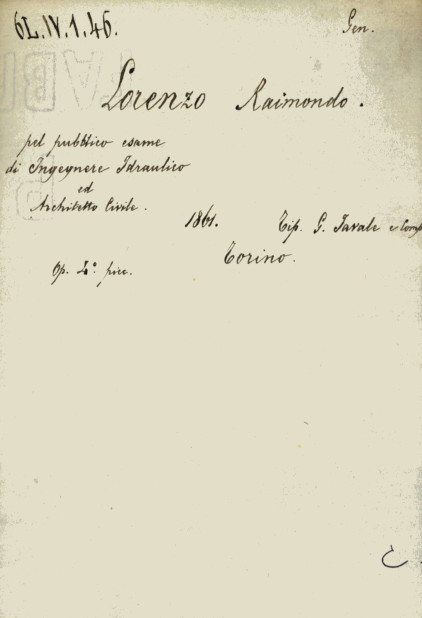 6L.IV.1.46.
Gen.
Lorenzo Raimondo.
pel pubblico esame
di Ingegnere Idraulico
ed
Architetto Civile.
1861. Tip. G. Favale e Comp
Torino.
Op. 4° picc.